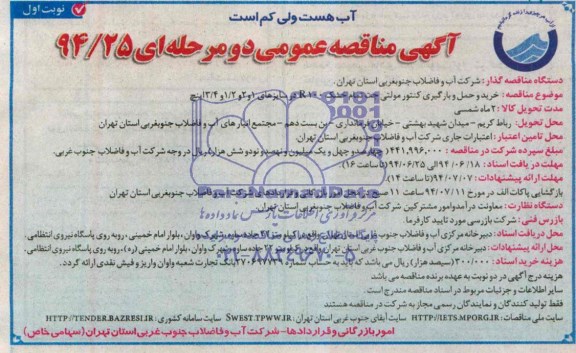 نوبت اول
آب هست ولی کم است
آگهی مناقصه عمومی دو مرحله‌ای ۹۴/۲۵
دستگاه مناقصه گذار: شرکت آب و فاضلاب جنوبغربی استان تهران.
موضوع مناقصه: خرید و حمل و بارگیری کنتور مولتی جت تمام خشک R۱۰۰ در سایزهای ۱و۲و۱/۲و۳/۴اینچ
مدت تحویل کالا: ۲ماه شمسی
محل تحویل: رباط کریم - میدان شهید بهشتی - خیابان فرمانداری - بن بست دهم - مجتمع انبار های آب و فاضلاب جنوبغربی استان تهران
محل تامین اعتبار: اعتبارات جاری شرکت آب و فاضلاب جنوبغربی استان تهران
مبلغ سپرده شرکت در مناقصه: ۴۴۱,۹۹۶,۰۰۰ چهل و یک میلیون و نهصد و نود و شش هزار ریال در وجه شرکت آب و فاضلاب جنوب غربی
مهلت دریافت اسناد: ۹۴/۰۶/۱۸ الی ۹۴/۰۶/۲۵ (تا ساعت ۱۶)
مهلت ارائه پیشنهادات: ۹۴/۰۷/۰۷ (تا ساعت ۱۴).
بازگشایی پاکات الف در مورخ ۹۴/۰۷/۱۱ ساعت ۱۱ صبح شرکت آب و فاضلاب جنوبغربی استان تهران
دستگاه نظارت: معاونت درآمد و امور مشترکین شرکت آب و فاضلاب جنوبغربی استان تهران.
بازرس فنی: شرکت بازرسی مورد تایید کارفرما
محل دریافت اسناد: دبیرخانه مرکزی آب و فاضلاب جنوب غربی استان تهران واقع در کیلومتر جاده ساوه، شهرک واوان، بلوار امام خمینی، روبه روی پاسگاه نیروی انتظامی.
محل ارائه پیشنهادات: دبیرخانه مرکزی آب و فاضلاب جنوب غربی استان تهران واقع در جاده ساوه، شهرک واوان، بلوار امام خمینی (ره)، روبه روی پاسگاه نیروی انتظامی.
هزینه خرید اسناد: ۳۰۰/۰۰۰ (سیصد هزار) ریال می باشد که باید به حساب شماره بانک تجارت شعبه واوان واریز و فیش نقدی ارائه گردد.
هزینه درج آگهی در دو نوبت به عهده برنده مناقصه می باشد
سایر اطلاعات و جزئیات مربوط در اسناد مناقصه مندرج است.
فقط تولید کنندگان و نمایندگان رسمی مجاز به شرکت در مناقصه هستند
سایت ملی مناقصات: HTTP://IETS.MPORG.IR سایت آبفای جنوب غربی استان تهران: SWEST.TPWW.IR سایت سامانه کشوری: HTTP://TENDER.BAZRESI.IR
امور بازرگانی و قراردادها - شرکت آب و فاضلاب جنوب غربی استان تهران (سهامی خاص)
۰۲۱-۸۸۳۴۹۶۷۰-۵